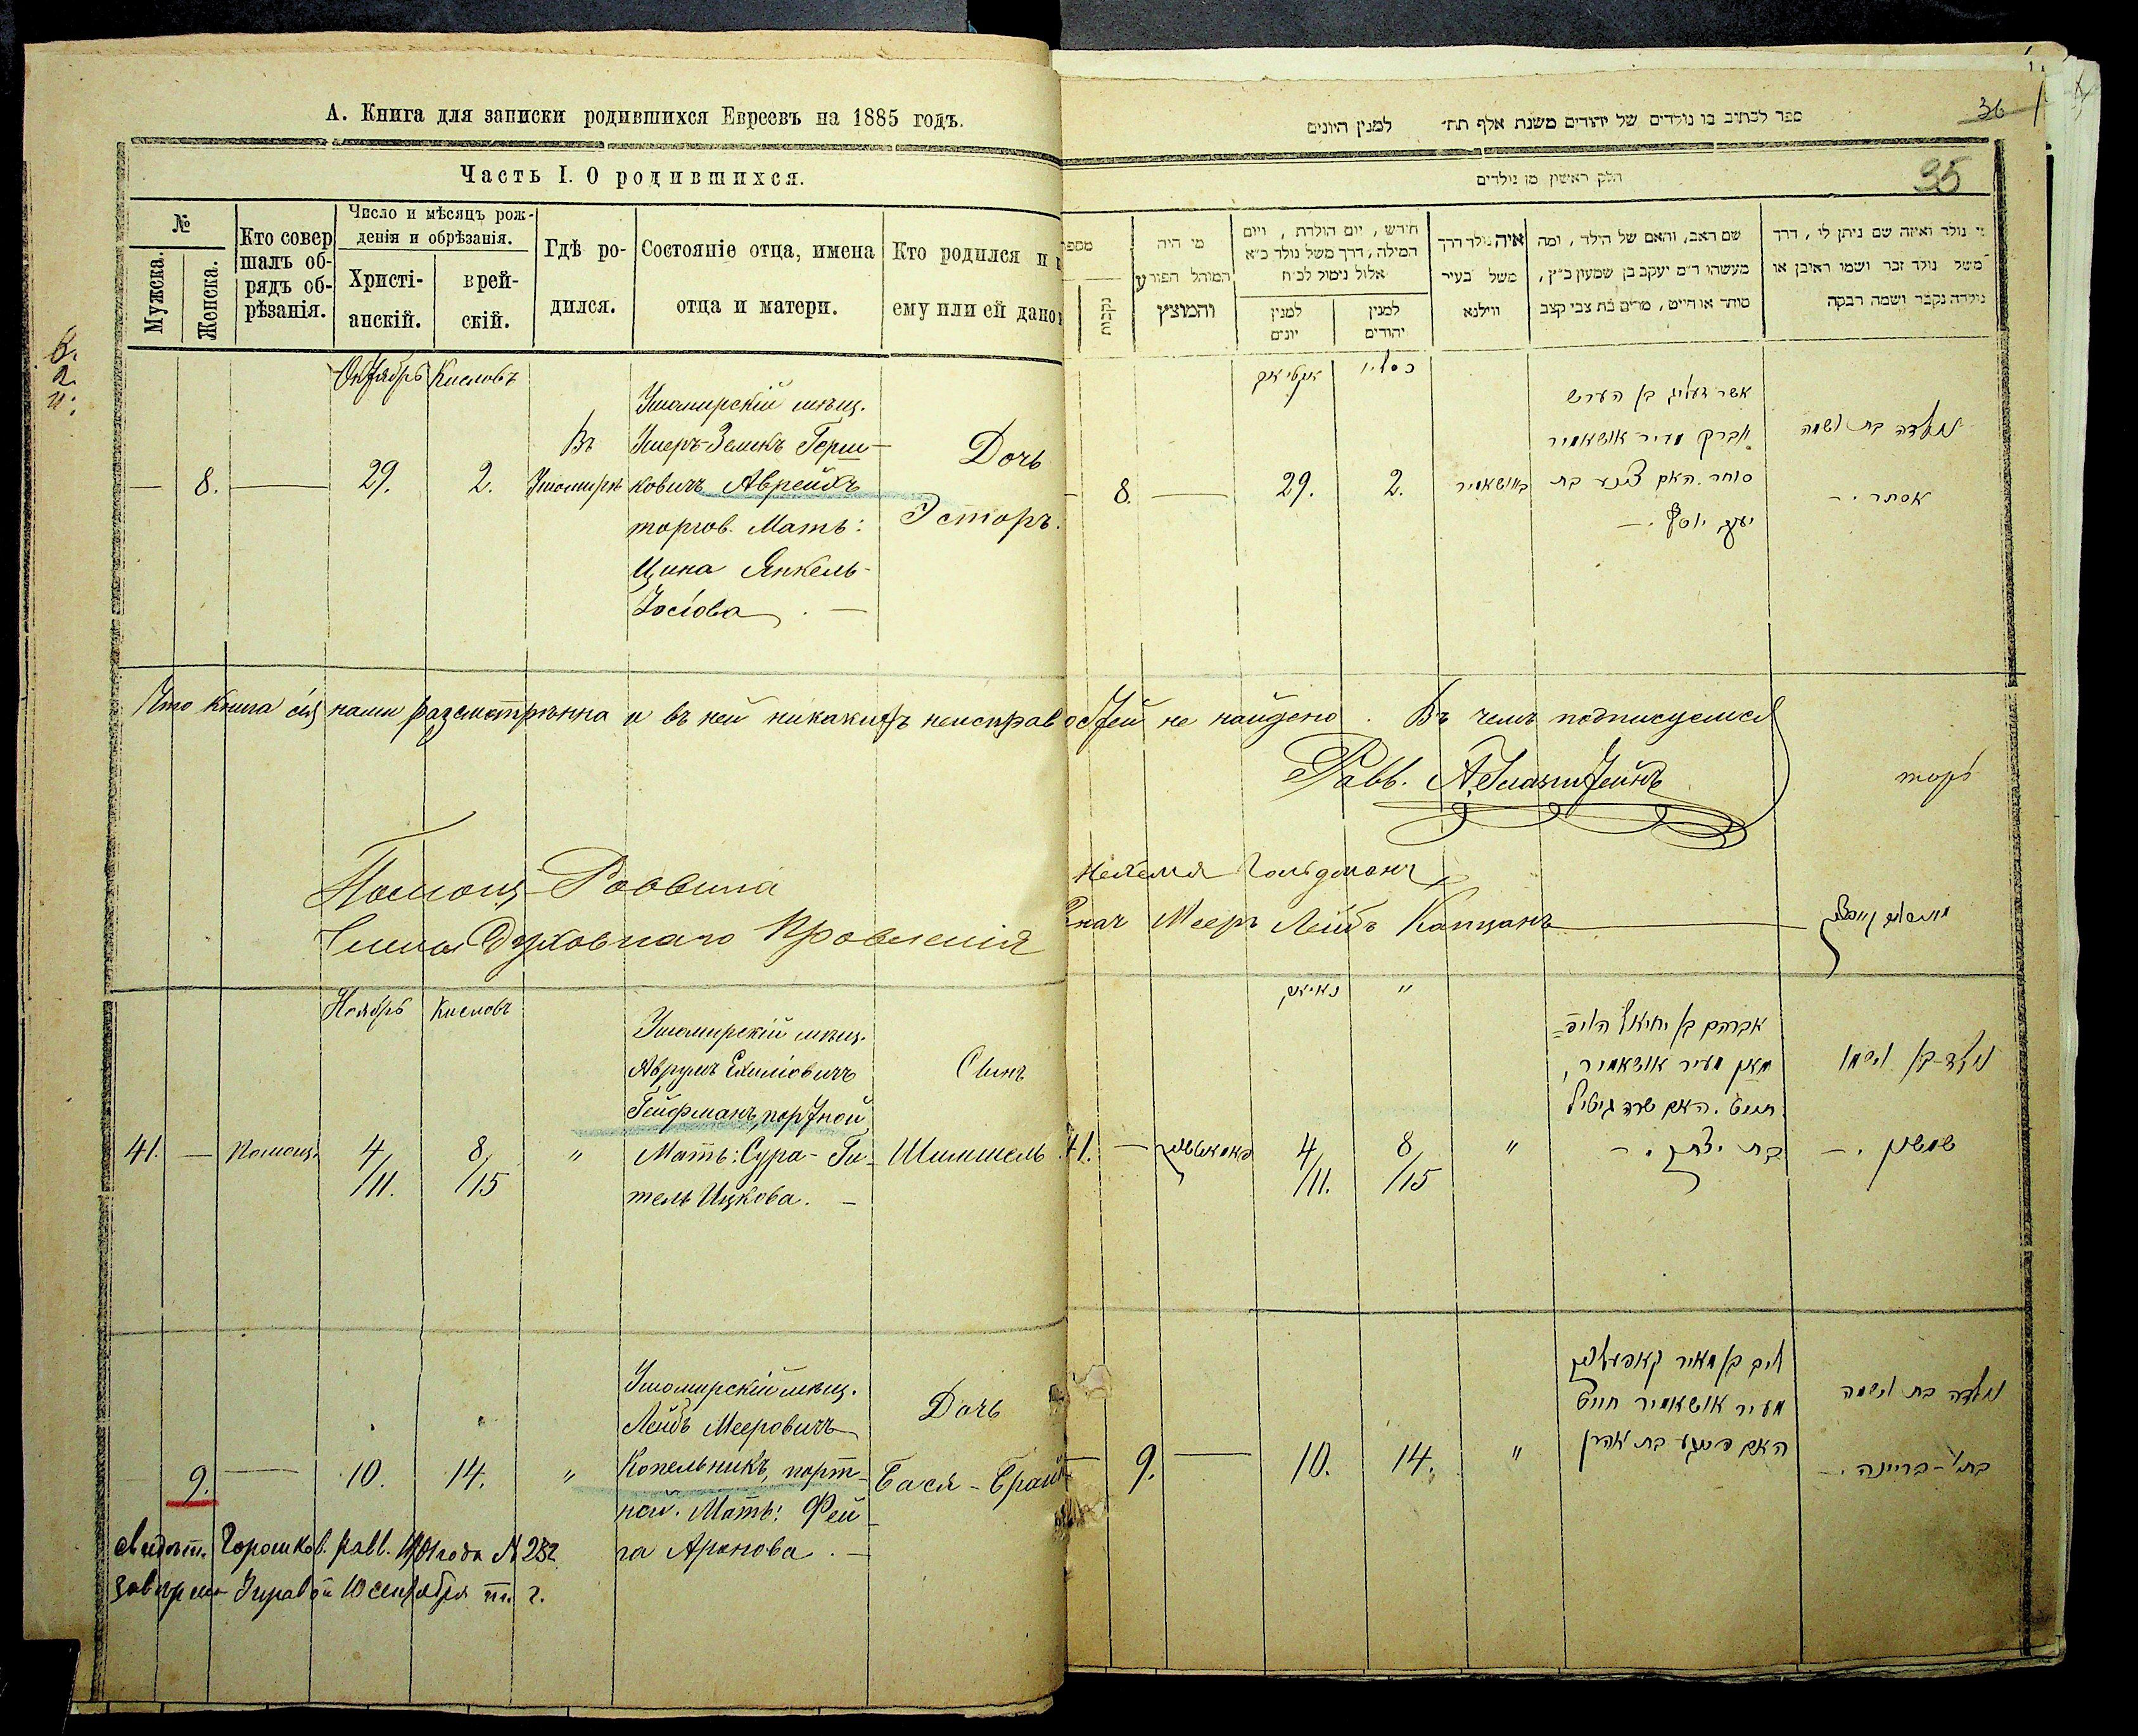 А. Книга для записки родившихся Евреевъ на 1885 годъ.
Часть I. О родившихся.
№
Мужска.
Женска.
Кто совер
шалъ об-
рядъ об-
рѣзанія.
Число и мѣсяцъ рож-
денія и обрѣзанія.
Христі-
анскій.
врей-
скій.
Гдѣ ро-
дился.
Состояніе отца, имена
отца и матери.
Кто родился и
ему или ей дано
Октябрь Кисловъ
— 8. — 29. 2.
Въ
Ушомирѣ
Ушомирскій мѣщ.
Ушеръ-Зеликъ Герш-
ковичъ Аврейхъ
торгов. Мать:
Цина Янкель-
Іосіова. —
Дочь
Эстеръ.
Что книга сія нами разсмотрѣнна и въ ней никакихъ неисправностей не найдено. Въ чемъ подписуемся
Равв.
Помощ. Раввина Нехемія Гольдманъ
Члены Духовнаго Правленія
Мееръ Лейбъ Капцанъ
Ноябрь Кисловъ
41. — Помощ. 4/11. 8/15 "
Ушомирскій мѣщ.
Аврумъ Ехиліовичъ
Гейфманъ, портной
Мать: Сура-Ги-
тель Ицкова. —
Сынъ
Шимшель
9. — 10. 14. "
Ушомирскій мѣщ.
Лейбъ Мееровичъ
Копельникъ, порт-
ной. Мать: Фей-
га Аронова. —
Дочь
Бася-Брайна
свидѣт. Горошков. равв. 1901 года № 232
10 сентября т. г.
ספר לכתיב בו נולדים של יהודים משנת אלף תת״ למנין היונים
36
35
חלק ראשון מן נולדים
מספר
נקבות
מי היה
המוהל הפורע
והמוצץ
חדש, יום הולדת, ויום
המילה, דרך משל נולד כ״א
אלול נימול לכ״ח
למנין
יונים
למנין
יהודים
איה נולד דרך
משל בעיר
ווילנא
שם האב, והאם של הילד, ומה
מעשהו ד״מ יעקב בן שמעון כ״ץ,
סוחר או חייט, מרים בת צבי קצב
מי נולד ואיזה שם ניתן לו, דרך
משל נולד זכר ושמו ראובן או
נולדה נקבה ושמה רבקה
כסליו
— 8. — 29. 2. באושאמיר
אשר זעליג בן הערש
סוחר. האם צינע בת
יעקב יוסף. —
נולדה בת ושמה
אסתר. —
41. — 4/11. 8/15 "
אברהם בן יחיאל הויפ=
מאן מעיר אושאמיר,
חייט. האם שרה גיטיל
בת יצחק. —
נולד בן ושמו
שמשון. —
— 9. — 10. 14. "
ליב בן מאיר קאפעלניק
מעיר אושאמיר חייט
האם פייגע בת אהרן
נולדה בת ושמה
בתי׳-בריינה. —